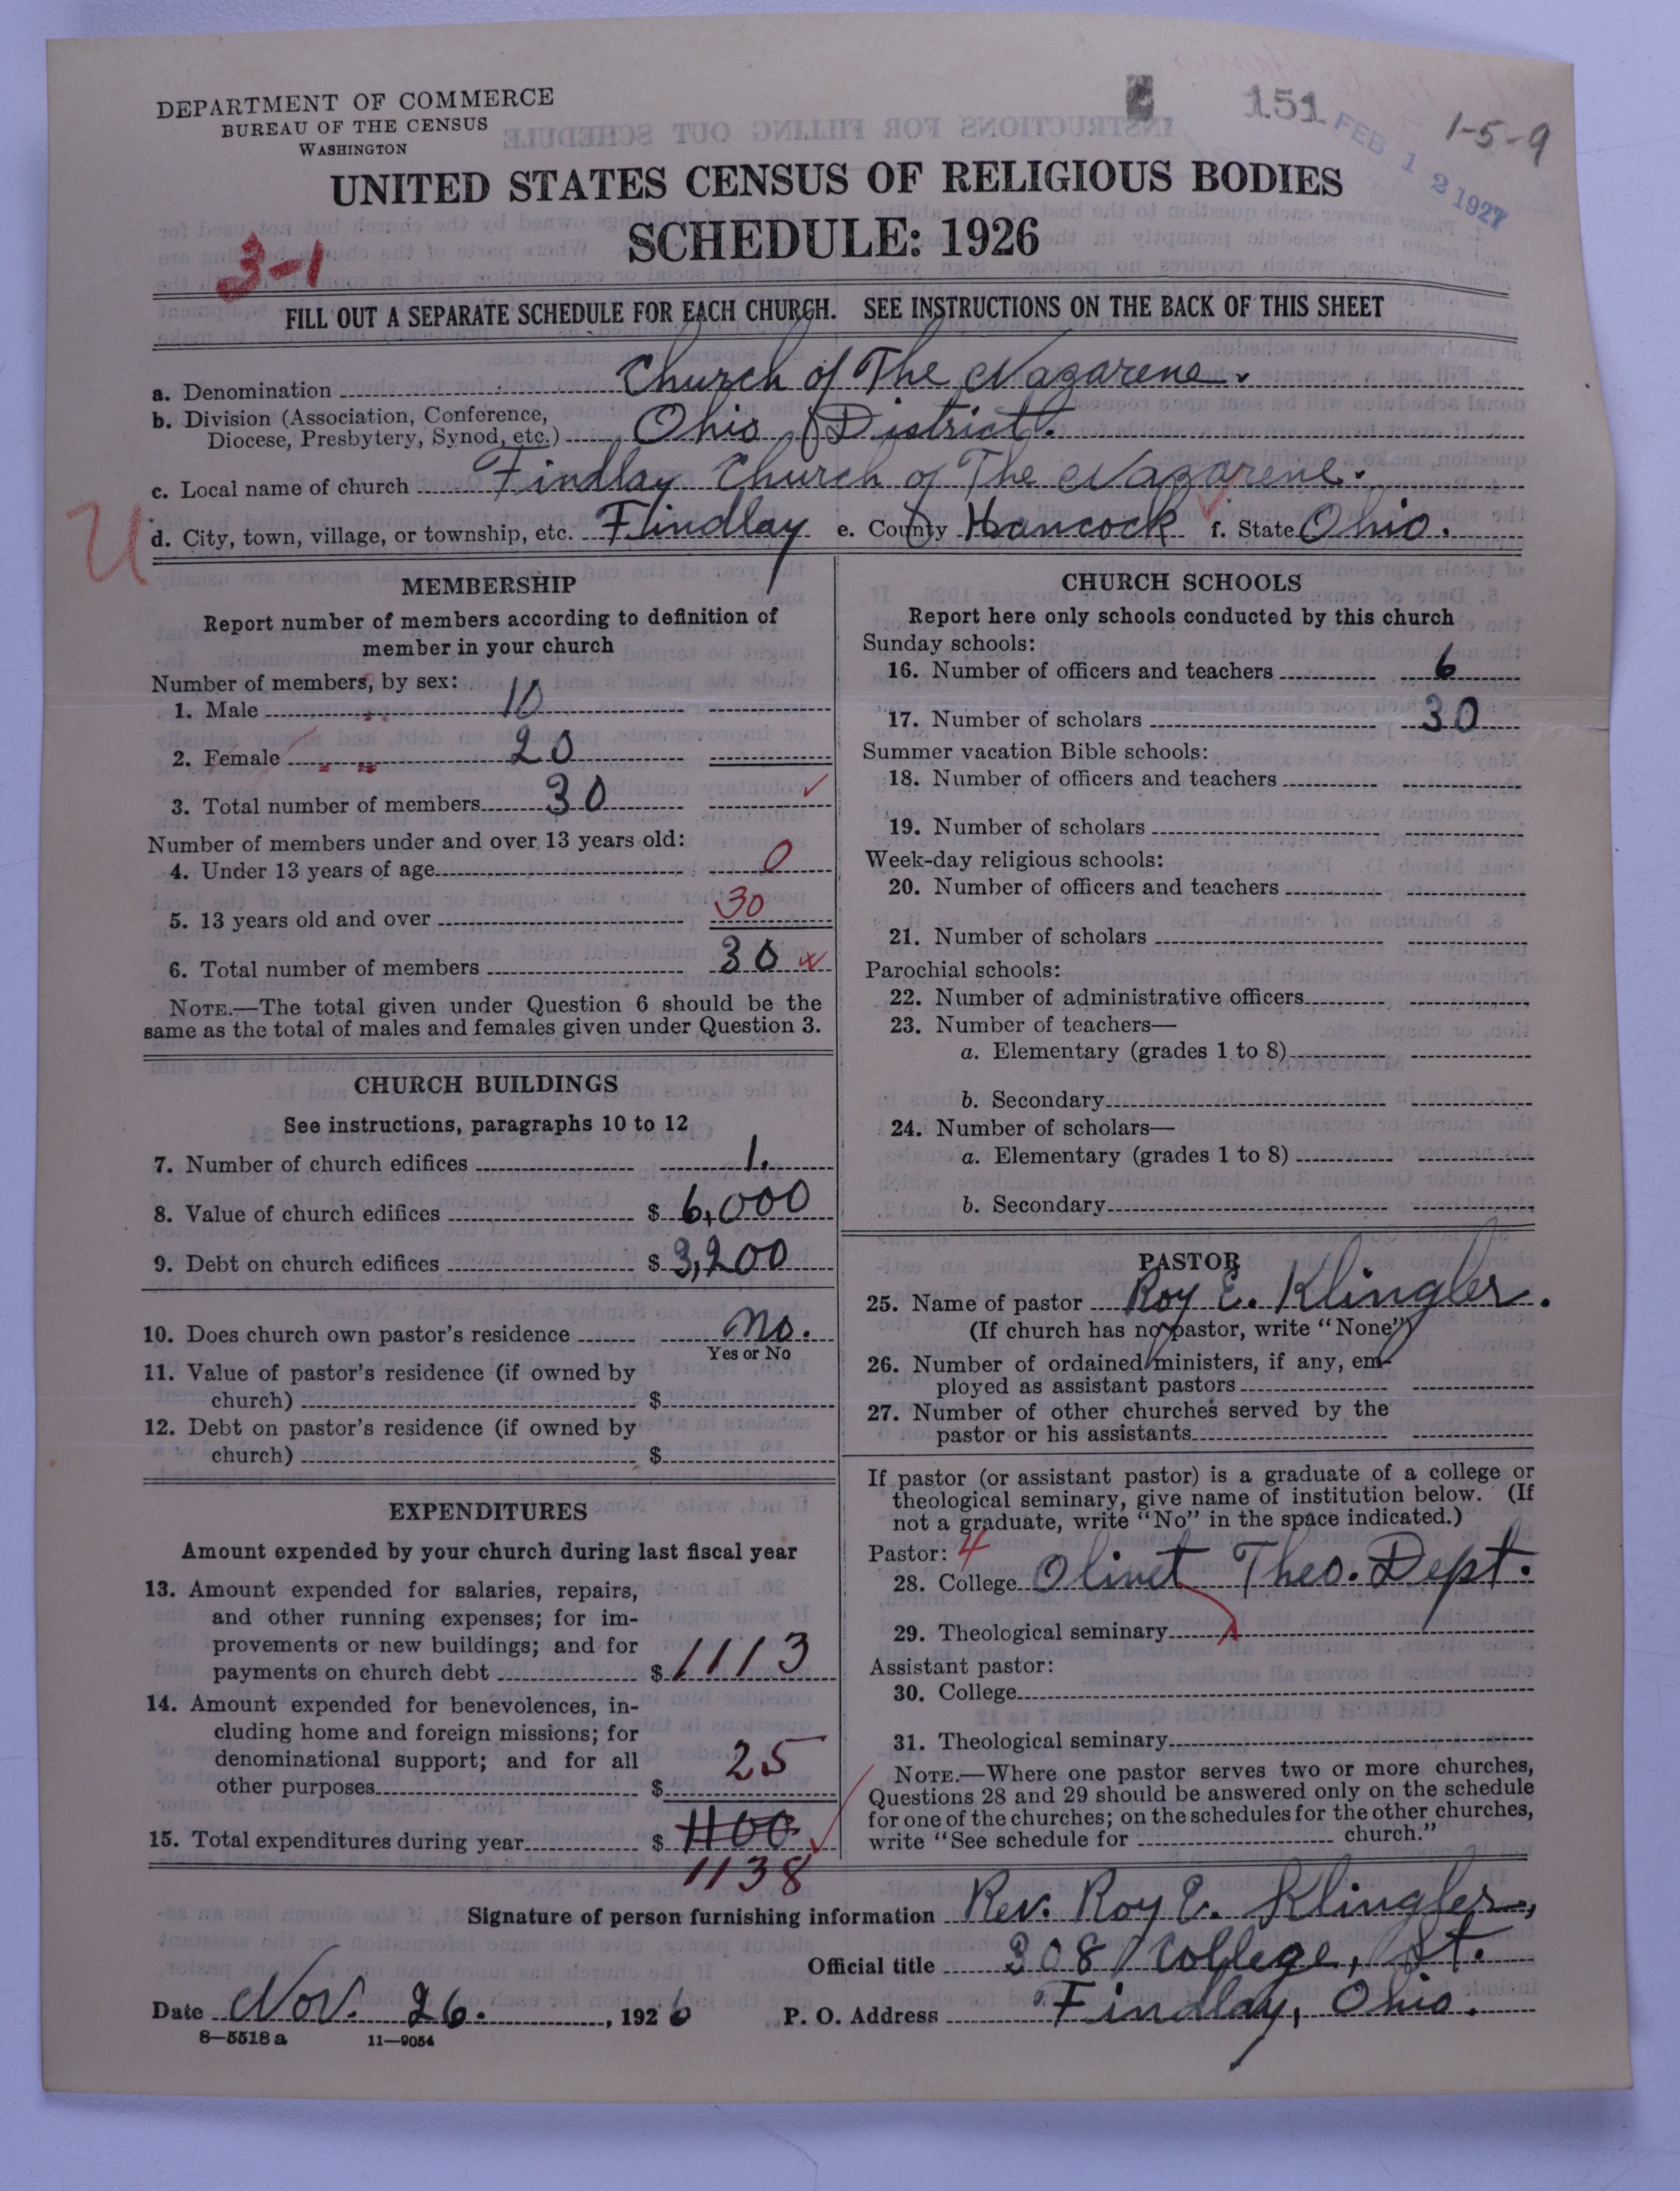 DEPARTMENT OF COMMERCE
BUREAU OF THE CENSUS
WASHINGTON
151
FEB 12 1927
1-5-9
UNITED STATES CENSUS OF RELIGIOUS BODIES
SCHEDULE: 1926
3-1
FILL OUT A SEPARATE SCHEDULE FOR EACH CHURCH. SEE INSTRUCTIONS ON THE BACK OF THIS SHEET
a. Denomination Church of The Nazarene.
b. Division (Association, Conference,
Diocese, Presbytery, Synod, etc.) Ohio, District.
c. Local name of church Findlay Church of The Nazarene.
U
d. City, town, village, or township, etc. Findlay e. County Hancock f. State Ohio.
MEMBERSHIP
Report number of members according to definition of
member in your church
Number of members, by sex:
1. Male 10
2. Female 20
3. Total number of members 30
Number of members under and over 13 years old:
4. Under 13 years of age 0
5. 13 years old and over 30
6. Total number of members 30
NOTE.—The total given under Question 6 should be the
same as the total of males and females given under Question 3.
CHURCH BUILDINGS
See instructions, paragraphs 10 to 12
7. Number of church edifices 1.
8. Value of church edifices $ 6,000
9. Debt on church edifices $ 3,200
10. Does church own pastor's residence No.
Yes or No
11. Value of pastor's residence (if owned by
church) $
12. Debt on pastor's residence (if owned by
church) $
EXPENDITURES
Amount expended by your church during last fiscal year
13. Amount expended for salaries, repairs,
and other running expenses; for im-
provements or new buildings; and for
payments on church debt $ 1113
14. Amount expended for benevolences, in-
cluding home and foreign missions; for
denominational support; and for all
other purposes $ 25
15. Total expenditures during year $ 1100
1138
CHURCH SCHOOLS
Report here only schools conducted by this church
Sunday schools:
16. Number of officers and teachers 6
17. Number of scholars 30
Summer vacation Bible schools:
18. Number of officers and teachers
19. Number of scholars
Week-day religious schools:
20. Number of officers and teachers
21. Number of scholars
Parochial schools:
22. Number of administrative officers
23. Number of teachers—
a. Elementary (grades 1 to 8)
b. Secondary
24. Number of scholars—
a. Elementary (grades 1 to 8)
b. Secondary
PASTOR
25. Name of pastor Roy E. Klingler.
(If church has no pastor, write "None")
26. Number of ordained ministers, if any, em-
ployed as assistant pastors
27. Number of other churches served by the
pastor or his assistants
If pastor (or assistant pastor) is a graduate of a college or
theological seminary, give name of institution below. (If
not a graduate, write "No" in the space indicated.)
Pastor: 4
28. College Olivet Theo. Dept.
29. Theological seminary
Assistant pastor:
30. College
31. Theological seminary
NOTE.—Where one pastor serves two or more churches,
Questions 28 and 29 should be answered only on the schedule
for one of the churches; on the schedules for the other churches,
write "See schedule for church."
Signature of person furnishing information Rev. Roy E. Klingler,
Official title 308 College, St.
Date Nov. 26. , 1926 P. O. Address Findlay, Ohio.
8-5518a 11-9054